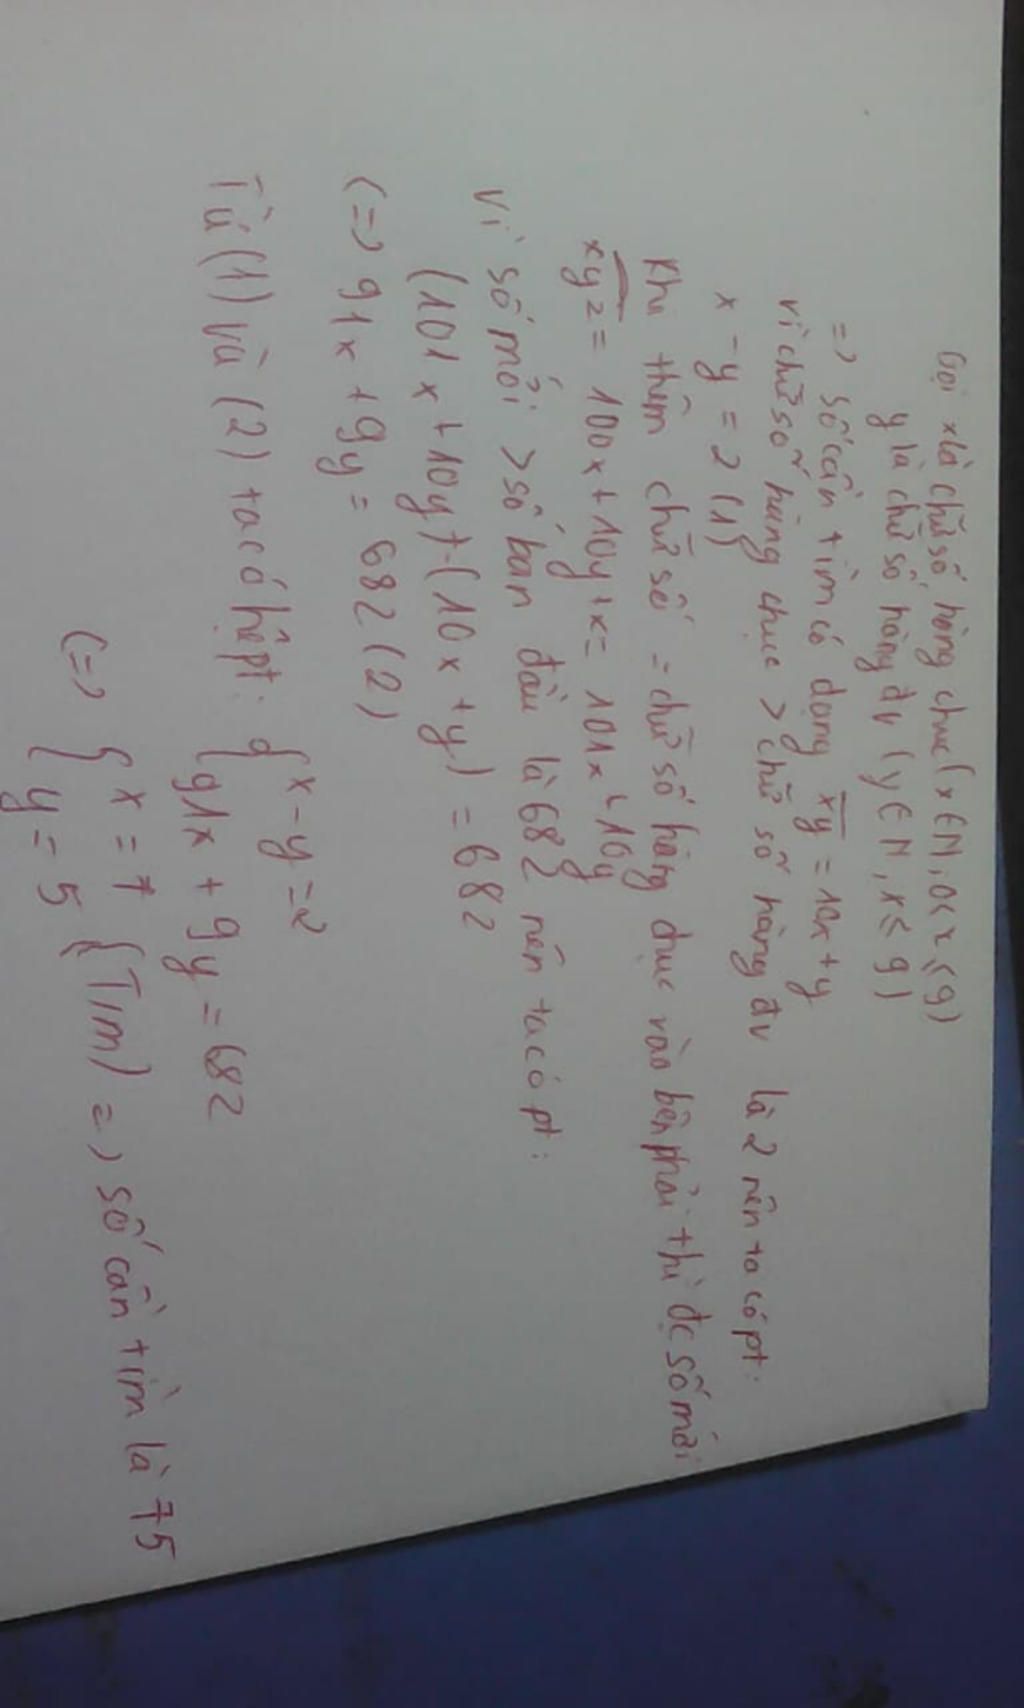 Gọi x là chữ số hàng chục (x ∈ N, 0 < x ≤ 9)
y là chữ số hàng đv (y ∈ N, x ≤ 9)
=> số cần tìm có dạng xy = 10x + y
Vì chữ số hàng chục > chữ số hàng đv là 2 nên ta có pt:
x - y = 2 (1)
Khi thêm chữ số = chữ số hàng chục vào bên phải thì đc số mới
xyz = 100x + 10y + x = 101x + 10y
Vì số mới > số ban đầu là 682 nên ta có pt:
(101x + 10y) - (10x + y) = 682
(=> 91x + 9y = 682 (2)
Từ (1) và (2) ta có hệ pt: { x - y = 2
91x + 9y = 682
(=> { x = 7
y = 5 (TM) => số cần tìm là 75